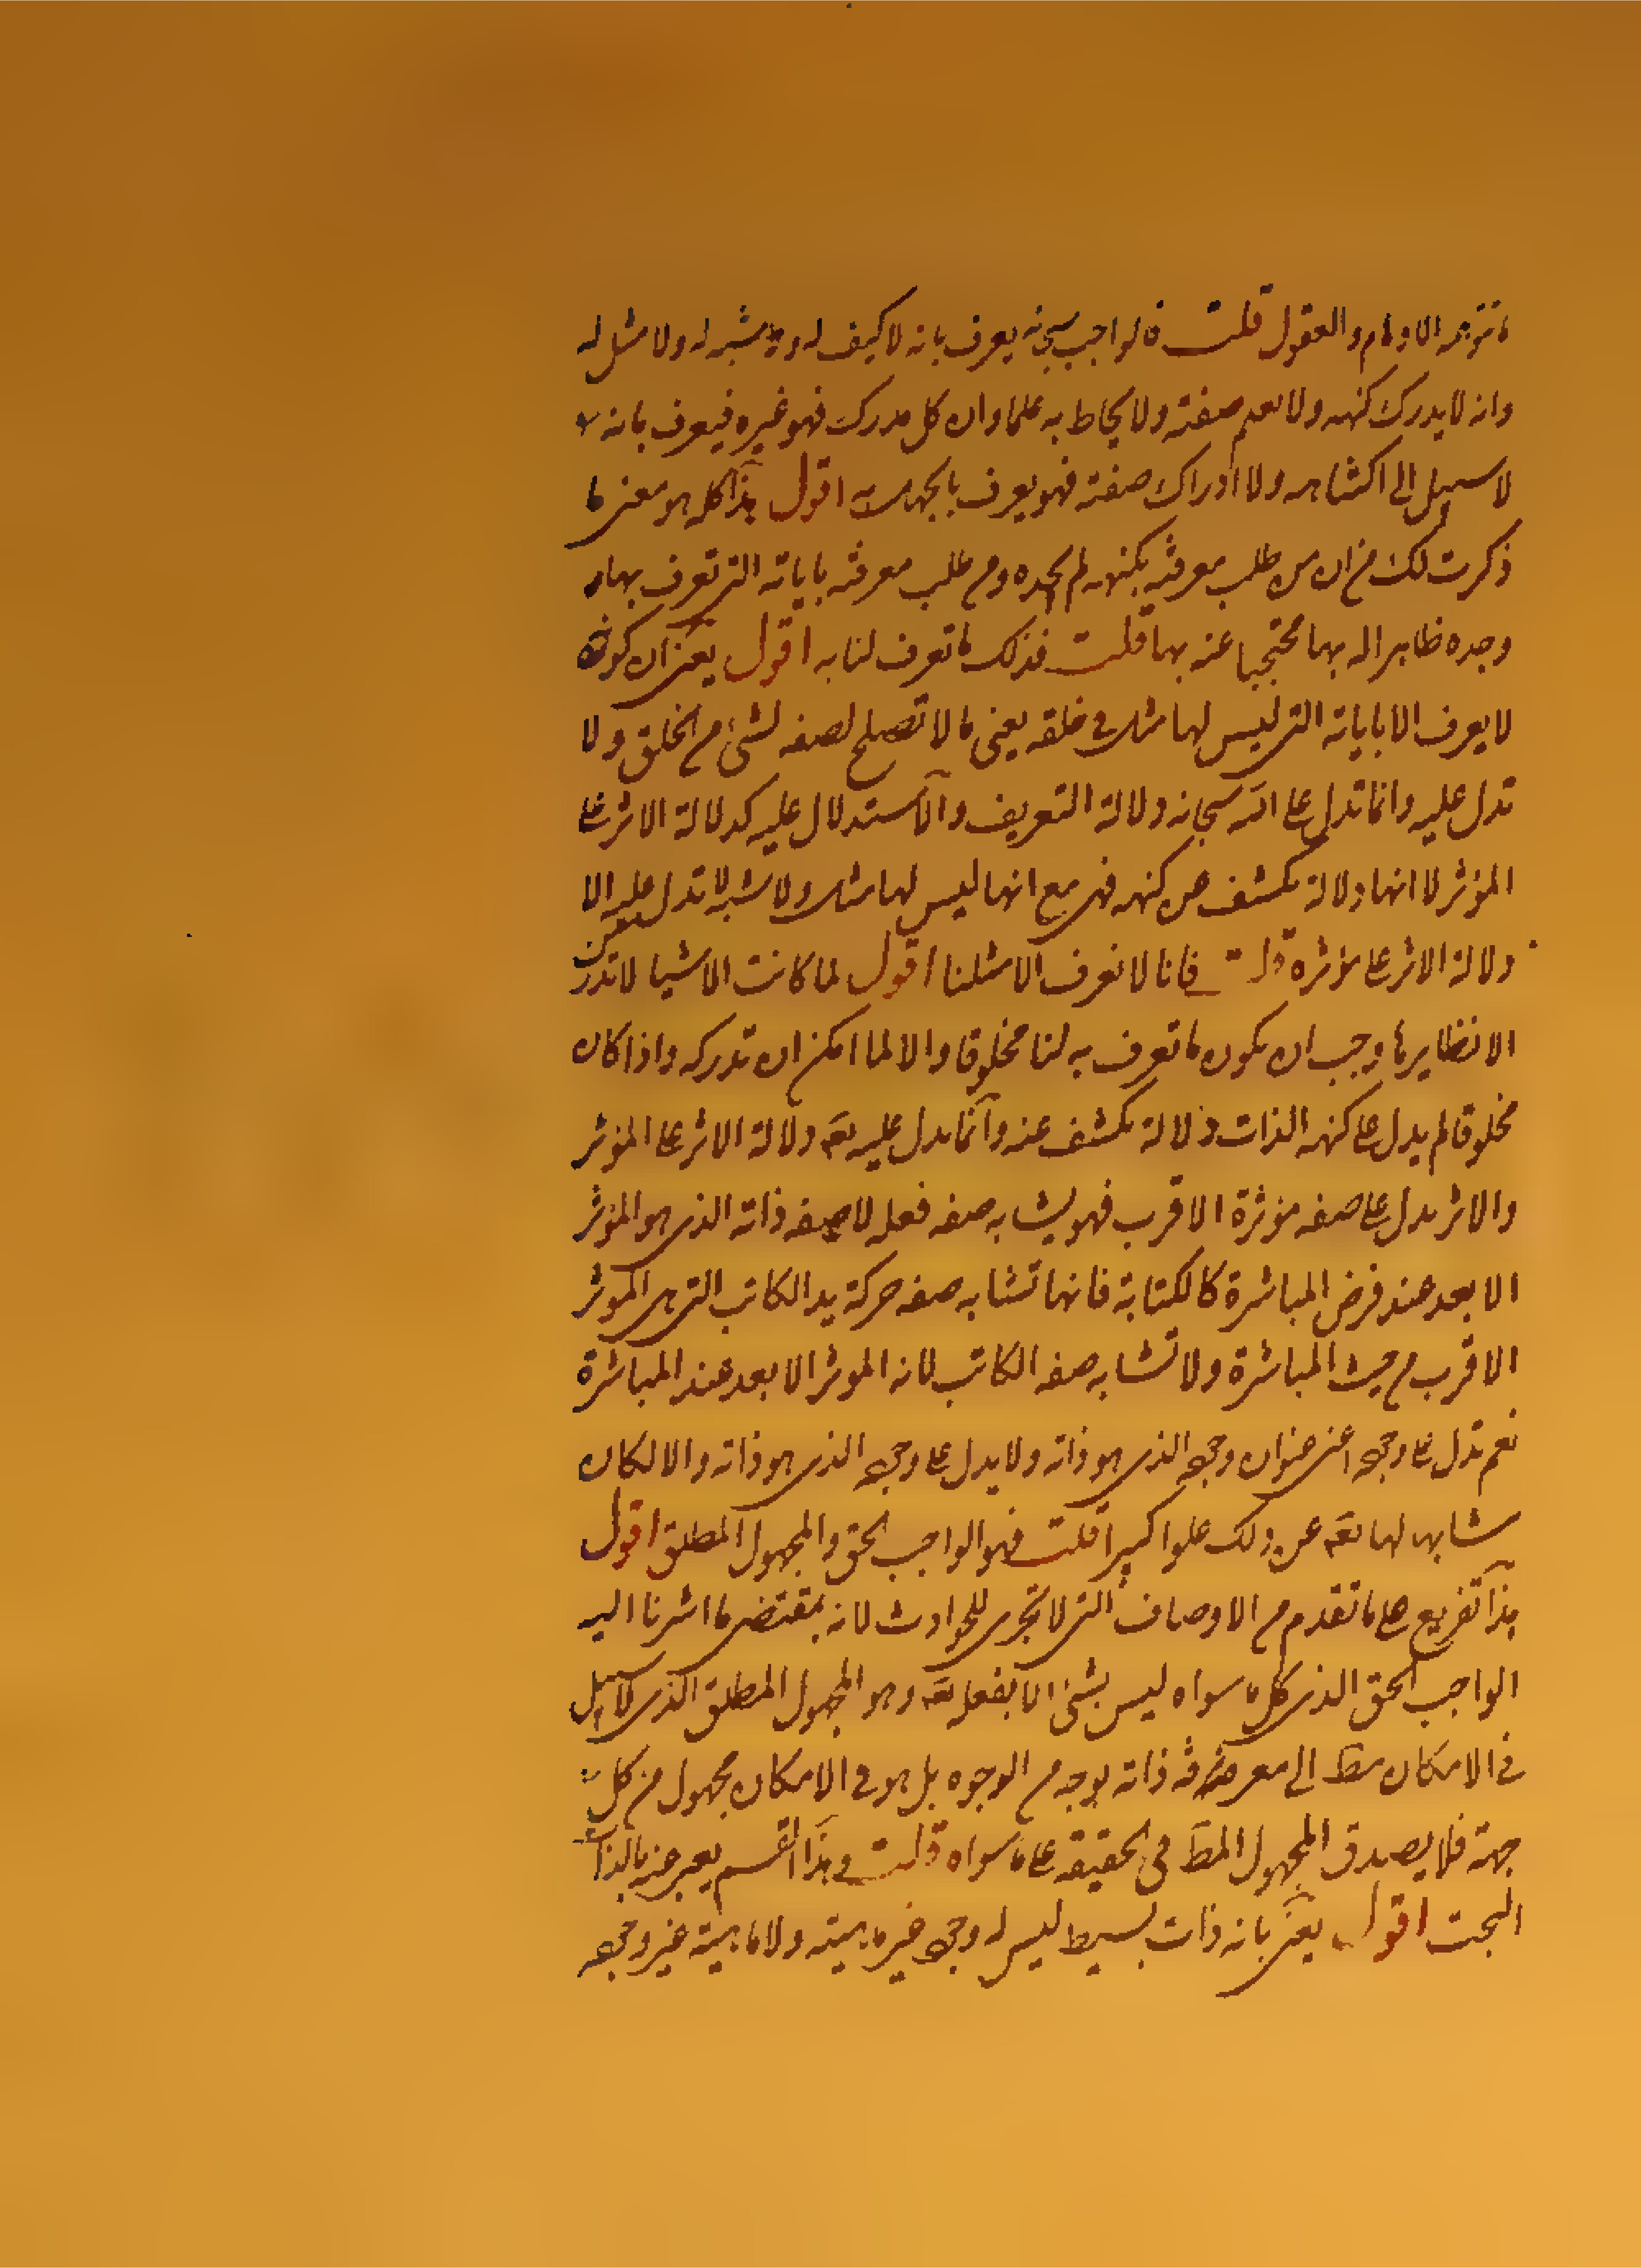 ما تتوهمه الاوهام والعقول قلت فالواجب سبحانه يعرف بانه لا كيف له ولا شبه له ولا مثل له
وانه لا يدرك كنهه ولا تعلم صفته ولا يحاط به علما وان كل مدرك فهو غيره فيعرف بانه
لا سبيل الى اكتناهه ولا ادراك صفته فهو يعرف بالجهل به اقول هذا كله هو معنى ما
ذكرت لك من ان من طلب معرفته بكنهه لم يجده ومن طلب معرفته باياته التى تعرف بها له
وجده ظاهرا له بها محتجبا عنه بها قلت فذلك ما تعرف لنا به اقول يعنى ان كونه
لا يعرف الا باياته التى ليس لها مثل فى خلقه يعنى ما لا تصلح لصفه لشئ من الخلق ولا
تدل عليه وانما تدل على الله سبحانه دلالة التعريف والاستدلال عليه كدلالة الاثر على
المؤثر لا انها دلالة تكشف عن كنهه فهى مع انها ليس لها مثل ولا شبه لا تدل عليه الا
دلالة الاثر على مؤثره قلت فانا لا نعرف الا مثلنا اقول لما كانت الاشيا لا تدرك
الا نظايرها وجب ان يكون ما تعرف به لنا مخلوقا والا لما امكن ان تدركه واذا كان
مخلوقا لم يدل على كنهه الذات دلالة تكشف عنه وانما يدل عليه تعه دلالة الاثر على المؤثر
والاثر يدل على صفه مؤثرة الاقرب فهو يشابه صفه فعله لا صفه ذاته الذى هو المؤثر
الابعد عند فرض المباشرة كالكتابة فانها تشابه صفه حركة يد الكاتب التى هى الموثر
الاقرب من حيث المباشرة ولا تشابه صفه الكاتب لانه الموثر الابعد عند المباشرة
نعم تدل على وجهه اعنى عنوان وجهه الذى هو ذاته ولا يدل على وجهه الذى هو ذاته والا لكان
مشابها لها تعه عن ذلك علوا كبيرا قلت فهو الواجب الحق والمجهول المطلق اقول
هذا تفريع على ما تقدم من الاوصاف التى لا تجرى للحوادث لانه بمقتضى ما اشرنا اليه
الواجب الحق الذى كل ما سواه ليس بشئ الا بفعله تعه وهو المجهول المطلق الذى لا سبيل
فى الامكان مط الى معرفة ذاته بوجه من الوجوه بل هو فى الامكان مجهول من كل
جهة فلا يصدق المجهول المط فى الحقيقه على ما سواه قلت وهذا القسم يعبر عنه بالذات
البحت اقول يعنى بانه ذات بسيط ليس له وجهه غير ماهيته ولا ماهية غير وجهه